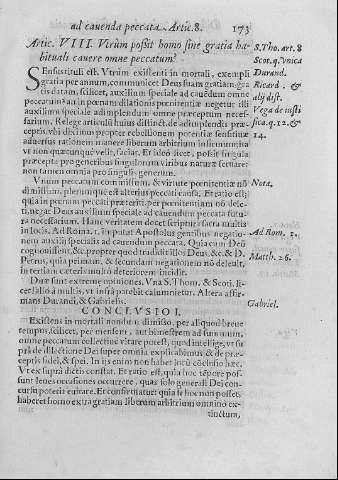 ad cauenda peccata. Artic. 8. 173
Artic. VIII. Vtrùm possit homo sine gratia ha-
bituali cauere omne peccatum? S. Tho. art. 8
SEnsus tituli est. Vtrùm existenti in mortali, exempli Scot. q. vnica
gratia per annum, communicet Deus suam gratiam, gra Durand.
tis datam, scilicet, auxilium speciale ad cauendum omne Ricard. &
peccatum? an in pœnam dilationis pœnitentiæ negetur illi alij dist.
auxilium speciale ad implendum omne præceptum neces- Vega de iusti
sarium. Relege articuli huius distinct. de adimplendis præ- fica. q. 12. &
ceptis, vbi diximus propter rebellionem potentiæ sensitiuæ 14.
aduersus rationem manere liberum arbitrium infirmum, ita
vt non quæcunque velit, faciat. Et ideo licet, possit singula
præcepta pro generibus singulorum viribus naturæ seruare:
non tamen omnia pro singulis generum.
Vtrum peccatum commissum, & virtute pœnitentiæ nō Nota.
dimissum, plerumque est alterius peccati causa. Et ratio est;
quia in pœnam peccati præteriti, per pœnitentiam nō dele-
ti, negat Deus auxilium speciale ad cauendum peccata futu-
ra necessarium. Hanc veritatem docet scriptura sacra multis
in locis. Ad Roma. 1. imputat Apostolus gentibus negatio- Ad Rom. 1.
nem auxilij specialis ad cauendum peccata. Quia cum Deū
cognouissent, &c. propter quod tradidit illos Deus: &c. & D.
Petrus, quia primum, & secundum negationem nō deleuit, Matth. 26.
in tertiam cæteris multò deteriorem incidit.
Duæ sunt extreme opiniones. Vna S. Thom. & Scoti. li-
cet falsò à multis, vt infrà patebit calumnietur. Altera affir-
mans Durandi, & Gabrielis. Gabriel.
CONCLVSIO I.
Existens in mortali nondum dimisso, per aliquod breue
tempus, scilicet, per mensem, aut bimestrem ad summum,
omne peccatum collectiuè vitare potest, quod intellige, vt su
prà de dilectione Dei super omnia explicabimus & de præ-
ceptis fidei, & spei. In ijs enim non habet locū cōclusio hæc.
Vt ex suprà dictis constat. Et ratio est, quia hoc tēpore pos-
sunt leues occasiones occurrere, quas solo generali Dei con-
cursu poterit euitare. Et confirmatur: quia si hoc non posset,
haberet homo extra gratiam liberum arbitrium omninò ex-
tinctum,